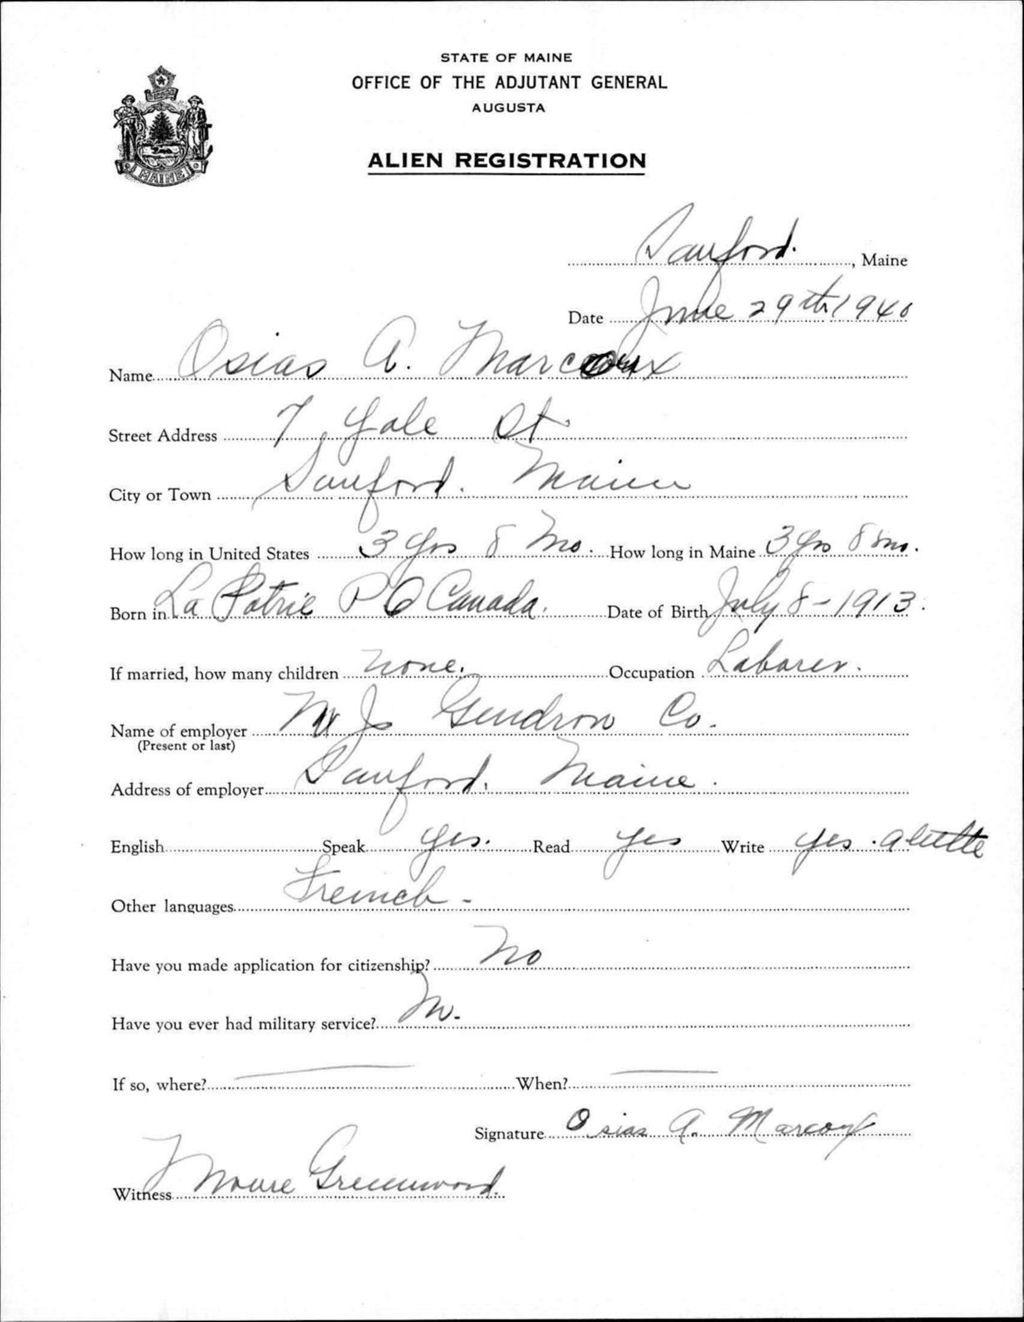 STATE OF MAINE
OFFICE OF THE ADJUTANT GENERAL
AUGUSTA
ALIEN REGISTRATION
MAINE
Sanford, Maine
Date June 29th 1940
Name Osias A. Marcoux
Street Address 7 Yale St.
City or Town Sanford. Maine
How long in United States 3 Yrs 8 Mo. How long in Maine 3 Yrs 8 mo.
Born in La Patrie P Q Canada. Date of Birth July 8 - 1913.
If married, how many children none. Occupation Laborer.
Name of employer Gendron Co.
(Present or last)
Address of employer Sanford. Maine.
English Speak yes. Read yes Write yes. a little
Other languages French -
Have you made application for citizenship? No
Have you ever had military service? No.
If so, where? When?
Signature Osias A. Marcoux
Witness Greenwood.